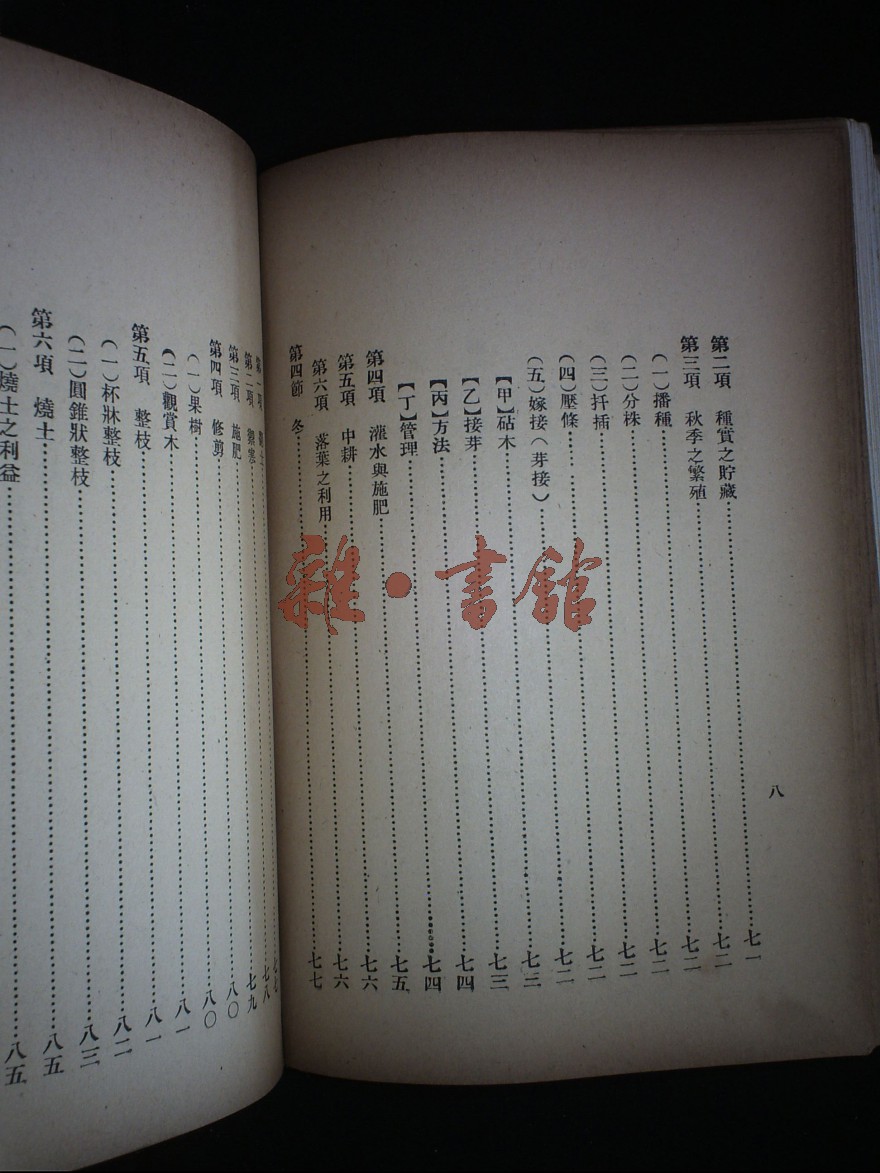 八
第二項 種實之貯藏……七一
第三項 秋季之繁殖……七二
(一)播種……七二
(二)分株……七二
(三)扦插……七二
(四)壓條……七二
(五)嫁接(芽接)……七二
【甲】砧木……七三
【乙】接芽……七三
【丙】方法……七四
【丁】管理……七四
第四項 灌水與施肥……七五
第五項 中耕……七六
第六項 落葉之利用……七六
第四節 冬……七七
第一項……七七
第二項 禦寒……七八
第三項 施肥……七九
第四項 修剪……八〇
(一)果樹……八〇
(二)觀賞木……八一
第五項 整枝……八一
(一)杯狀整枝……八二
(二)圓錐狀整枝……八三
第六項 燒土……八五
(一)燒土之利益……八五
雜·書館